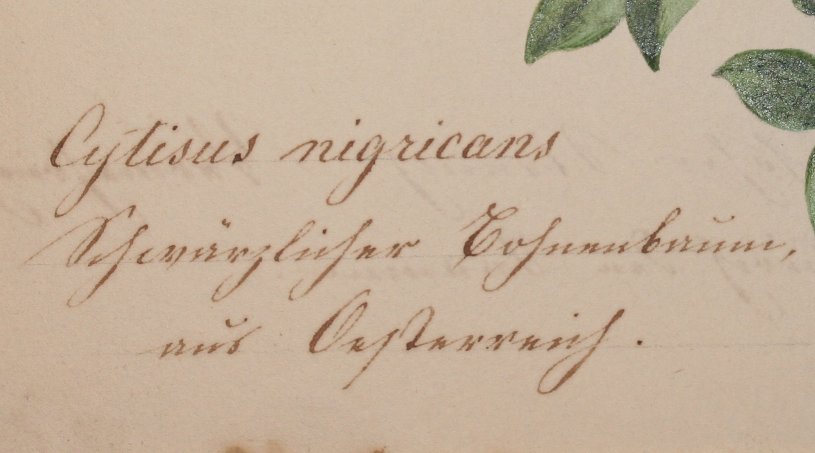 Cytisus nigricans
Schwärzlicher Bohnenbaum,
aus Oesterreich.